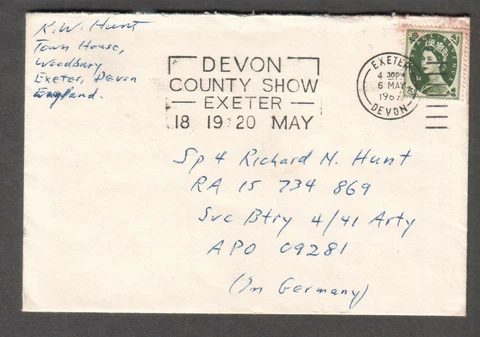 K.W. Hunt
Town House,
Woodbury
Exeter, Devon
England.
DEVON
COUNTY SHOW
EXETER
18 19 20 MAY
EXETER
4 30PM
6 MAY
1967
DEVON
Sp4 Richard N. Hunt
RA 15 734 869
Svc Btry 4/41 Arty
APO 09281
(In Germany)